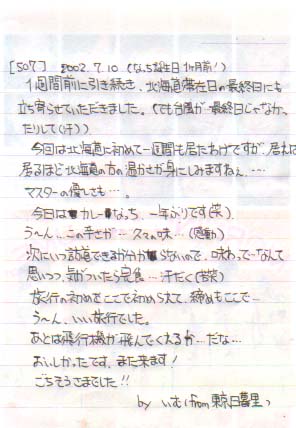 [507] 2002.7.10 (なっち誕生日1ヶ月前!)
1週間前に引き続き、北海道滞在日の最終日にも
立ち寄らせていただきました。(でも台風が…最終日じゃなか、
たりして(汗))
今回は北海道に初めて一週間も居たわけですが、居れば
居るほど北海道の方の温かさが身にしみますねぇ…。
マスターの優しさも…。
今日はカレーなっち、一年ぶりです(笑)
う〜ん、この辛さが…スマの味…(感動)
次にいつ訪道できるか分からないので、味わって…なんて
思いつつ、気がついたら完食…汗だく(苦笑)
旅行の初めをここで初められて、締めもここで…
う〜ん、いい旅行でした。
あとは飛行機が飛んでくれるか…だな…
おいしかったです、また来ます!
ごちそうさまでした!!
by いむ(from 東京日暮里)